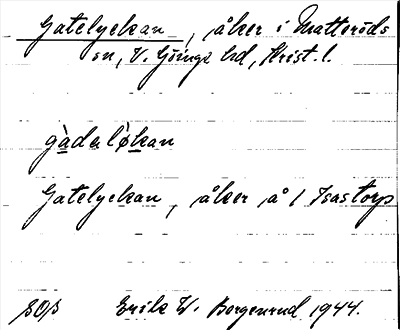 Gatelyckan, åker i Matteröds
sn, V. Göinge hd, Krist. l.
gàdaløkan
Gatelyckan, åker å 1 Isastorp
SOS Erik W. Borgenrud 1944.